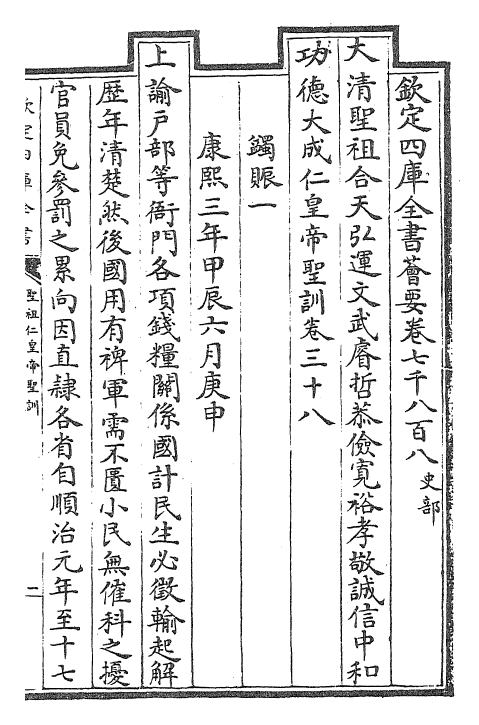 欽定四庫全書薈要卷七千八百八 史部
大清聖祖合天弘運文武睿哲恭儉寛裕孝敬誠信中和
功德大成仁皇帝聖訓卷三十八
蠲賑一
康熙三年甲辰六月庚申
上諭户部等衙門各項錢糧關係國計民生必徵輸起解
歴年清楚然後國用有裨軍需不匱小民無催科之擾
官員免參罰之累向因直隸各省自順治元年至十七
欽定四庫全書
聖祖仁皇帝聖訓
二